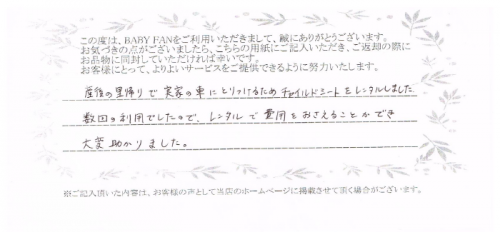 この度は、BABY FANをご利用いただきまして、誠にありがとうございます。
お気づきの点がございましたら、こちらの用紙にご記入いただき、ご返却の際に
お品物に同封していただければ幸いです。
お客様にとって、よりよいサービスをご提供できるように努力いたします。
産後の里帰りで実家の車にとりつけるためチャイルドシートをレンタルしました
数回の利用でしたので、レンタルで費用をおさえることができ
大変助かりました。
※ご記入頂いた内容は、お客様の声として当店のホームページに掲載させて頂く場合がございます。